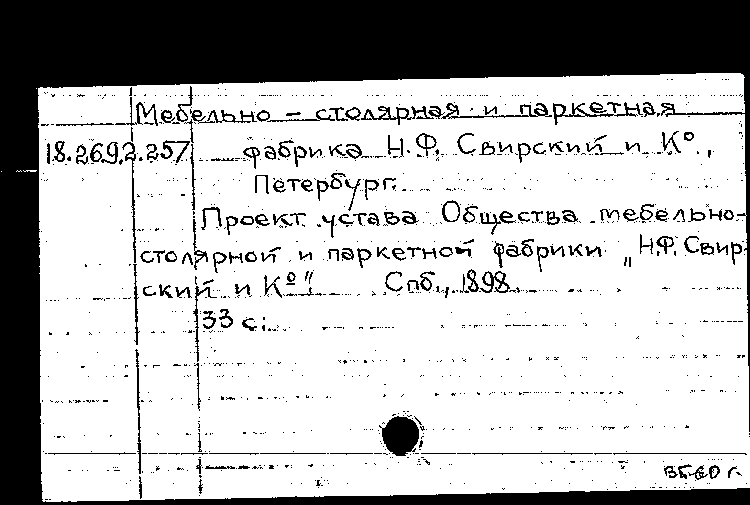 Мебельно - столярная и паркетная
18.269.2.257 фабрика Н.Ф. Свирский и Кº.,
Петербург.
Проект устава Общества мебельно-
столярной и паркетной фабрики „Н.Ф. Свир-
ский и Кº". Спб., 1898.
33 с.